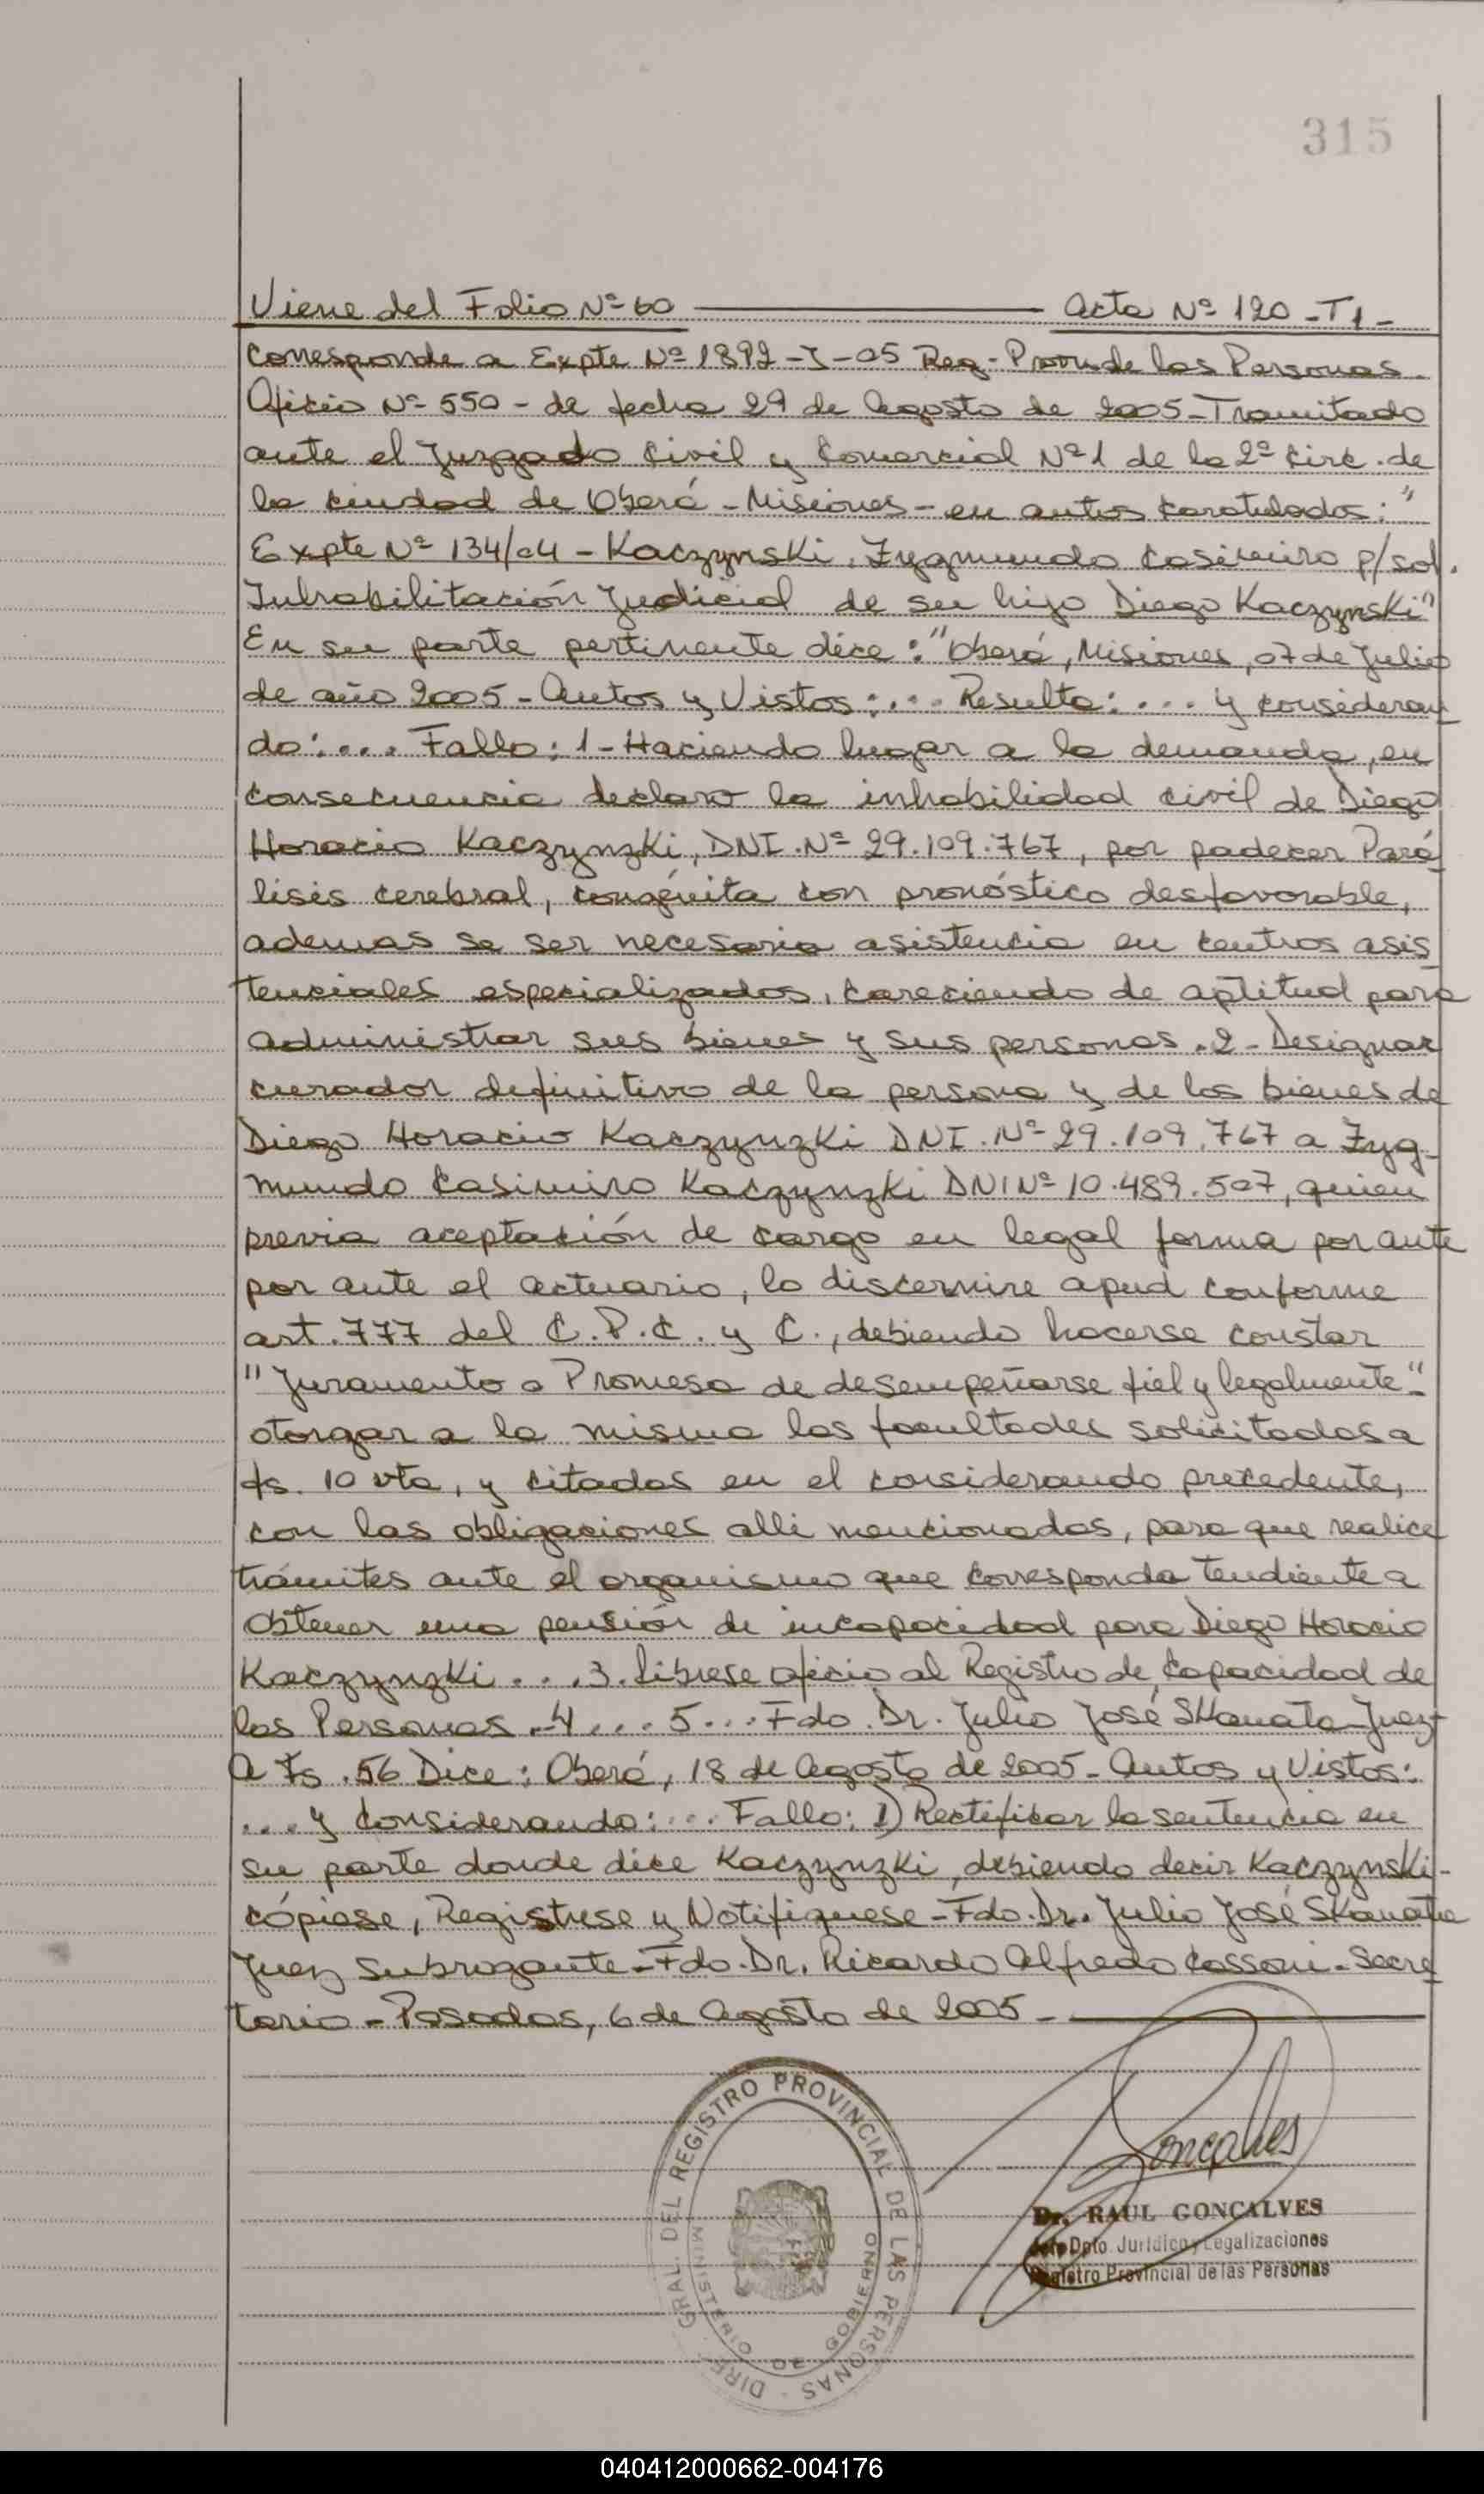 315
Viene del Folio Nº 60 ——— Acta Nº 120 - T1 -
Corresponde a Expte Nº 1892 - J - 05 Reg. Prov. de las Personas.
Oficio Nº 550 - de fecha 29 de Agosto de 2005 - Tramitado
ante el Juzgado Civil y Comercial Nº 1 de la 2ª Circ. de
la ciudad de Oberá - Misiones - en autos caratulados: "
Expte Nº 134/04 - Kaczynski, Zygmundo Casimiro p/sol.
Inhabilitación Judicial de su hijo Diego Kaczynski"
En su parte pertinente dice: "Oberá, Misiones, 07 de Julio
de año 2005 - Autos y Vistos: ... Resulta: ... y consideran
do: ... Fallo: 1 - Haciendo lugar a la demanda, en
consecuencia declaro la inhabilidad civil de Diego
Horacio Kaczynzki, DNI. Nº 29.109.767, por padecer Pará
lisis cerebral, congénita con pronóstico desfavorable,
ademas se ser necesario asistencia en centros asis
tenciales especializados, careciendo de aptitud para
administrar sus bienes y sus personas. 2 - Designar
curador definitivo de la persona y de los bienes de
Diego Horacio Kaczynzki DNI. Nº 29.109.767 a Zyg-
mundo Casimiro Kaczynzki DNI Nº 10.489.507, quien
previa aceptación de cargo en legal forma por ante
por ante el actuario, lo discernire apud conforme
art. 777 del C.P.C. y C., debiendo hacerse constar
"Juramento o Promesa de desempeñarse fiel y legalmente".
otorgar a la misma las facultades solicitadas a
fs. 10 vta, y citadas en el considerando precedente,
con las obligaciones alli mencionadas, para que realice
trámites ante el organismo que corresponda tendiente a
obtener una pensión de incapacidad para Diego Horacio
Kaczynzki ... 3. Líbrese oficio al Registro de Capacidad de
las Personas. 4 ... 5 ... Fdo. Dr. Julio José SKanata - Juez
A Fs. 56 Dice: Oberá, 18 de Agosto de 2005 - Autos y Vistos:
... y Considerando: ... Fallo: 1) Rectificar la sentencia en
su parte donde dice Kaczynzki, debiendo decir Kaczynski -
cópiese, Registrese y Notifiquese - Fdo. Dr. Julio José SKanata
Juez Subrogante - Fdo. Dr. Ricardo Alfredo Cassoni - Secre
tario - Posadas, 6 de Agosto de 2005 -
DIREC. GRAL. DEL REGISTRO PROVINCIAL DE LAS PERSONAS -
MINISTERIO DE GOBIERNO
Goncalves
Dr. RAUL GONCALVES
Jefe Dpto. Jurídico y Legalizaciones
Registro Provincial de las Personas
040412000662-004176